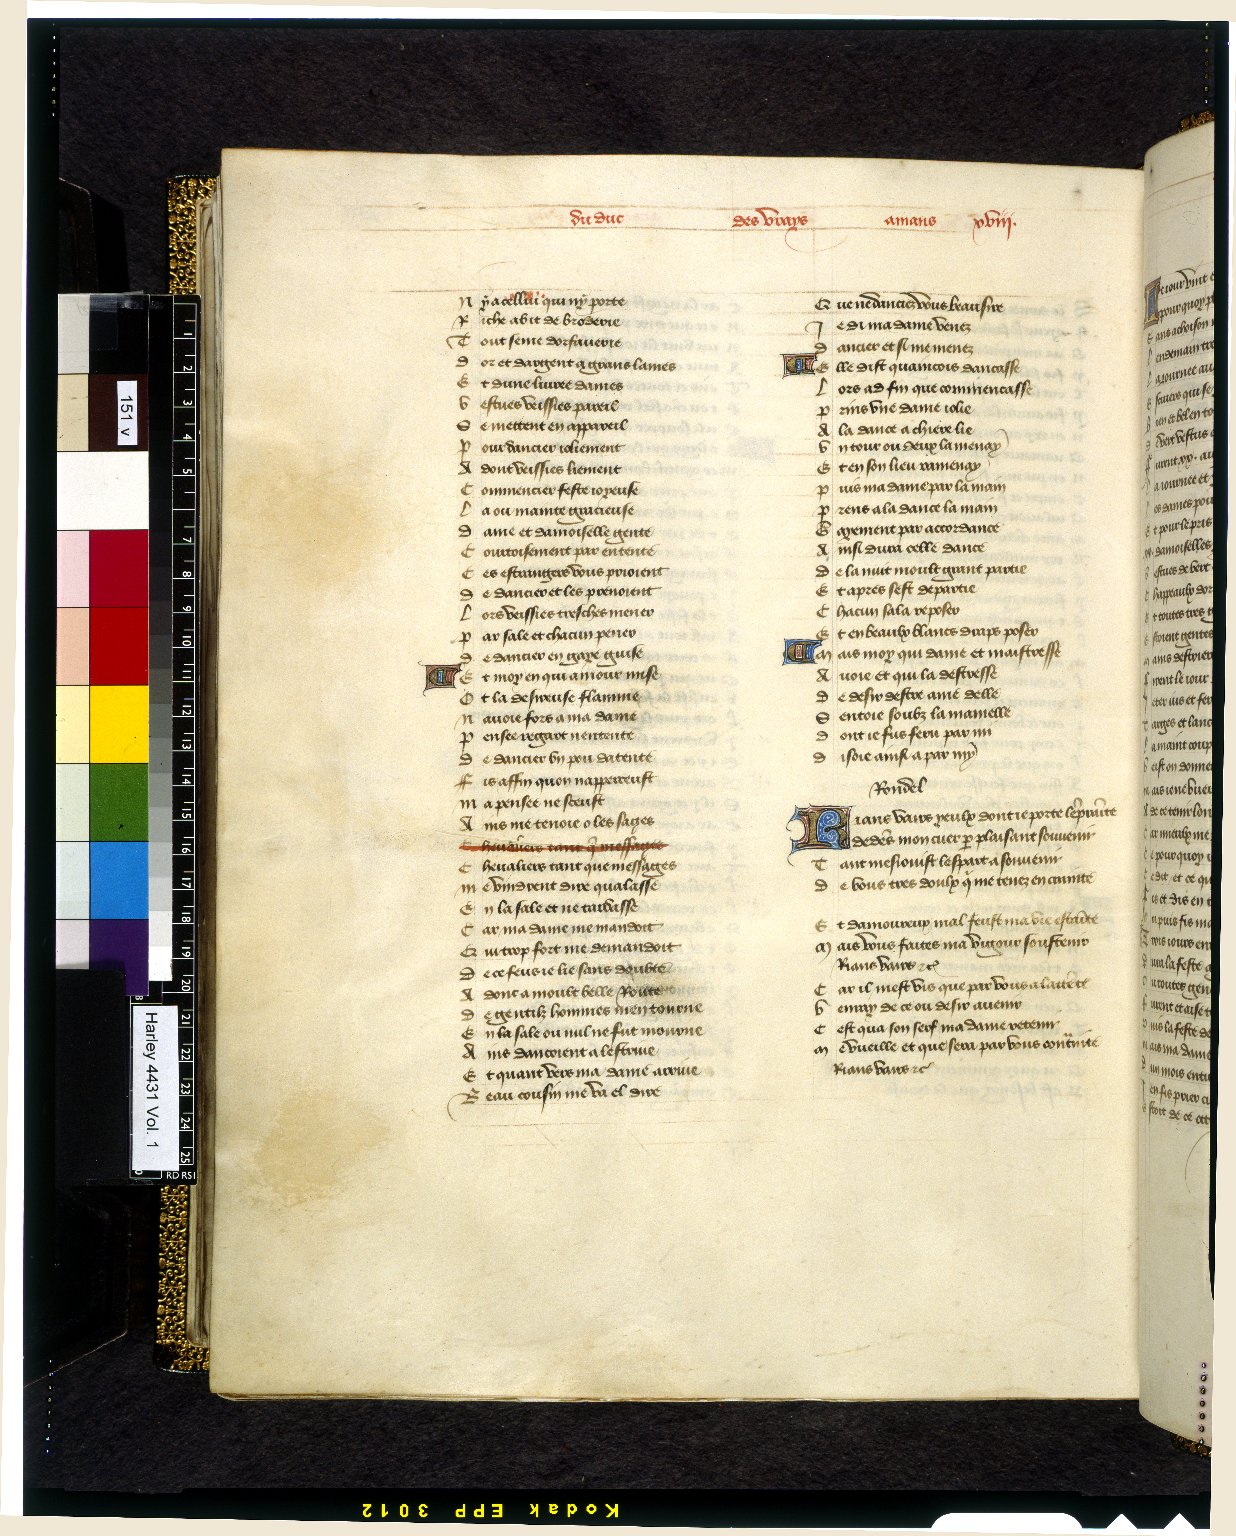 du duc des vrays amans xviii.
N y a cellui qui ny porte
R iche abit de broderie
T out seme dorfauerie
D or et dargent a grans lames
E t dune liuree dames
V estues veissies pareil
S e mettent en appareil
P our dancier ioliement
A dont veissies liement
C ommencier feste ioyeuse
L a ou mainte gracieuse
D ame et damoiselle gente
C ourtoisement par entente
C es estrangers vous prioient
D e dancier et les prenoient
L ors veissies tresches mener
P ar sale et chacun pener
D e dancier en gaye guise
E t moy en qui amour mise
O t la desireuse flamme
N auoie fors a ma dame
P ensee regart nentente
D e dancier un pou datente
F is affin quon napperceust
M a pensee ne sceust
A ins me tenoie o les sages
C heualiers tant q̃ messages
C heualiers tant que messages
M e vindrent dire qualasse
E n la sale et ne tardasse
C ar ma dame me mandoit
Q ui trop fort me demandoit
D e ce feus ie lie sans doubte
A donc a moult belle Route
D e gentilz hommes men tourne
E n la sale ou nul ne fut mourne
A ins dancoient a lestriue
E t quant vers ma dame arriue
B eau cousin me va el dire
Q ue ne danciez vous beau sire
J e di ma dame venez
D ancier et si me menez
E lle dist quaincois dancasse
L ors ad fin que commencasse
P rins vne dame iolie
A la dance a chiere lie
V n tour ou deux la menay
E t en son lieu ramenay
P uis ma dame par la main
P rens a la dance la main
G ayement par accordance
A insi dura celle dance
D e la nuit moult grant partie
E t apres sest departie
C hacun sala reposer
E t en beaulx blancs draps poser
M ais moy qui dame et maistresse
A uoie et qui la destresse
D e desir destre ame delle
S entoie soubz la mamelle
D ont ie fus feru par mi
D isoie ainsi a par my
Rondel
Rians vairs yeulx dont ie porte lẽpraĩte
Dedẽs mon cuer p̱ plaisant souuenir
T ant mesiouist lespart a souuenir
D e vous tres doulx q̃ me tenez en crainte
E t damoureux mal feust ma vie estaĩte
M ais vous faites ma vigour soustenir
Rians vairs ⁊c̃
C ar il mest vis que par vous a lataĩte
V enray de ce ou desir auenir
C est qua son serf ma dame retenir
M e vueille et que sera par vous
Rians vairs ⁊c̃
151 v
Harley 4431 Vol. 1
1
2
3
4
5
6
7
8
9
10
11
12
13
14
15
16
17
18
19
20
21
22
23
24
25
Kodak EPP 3012